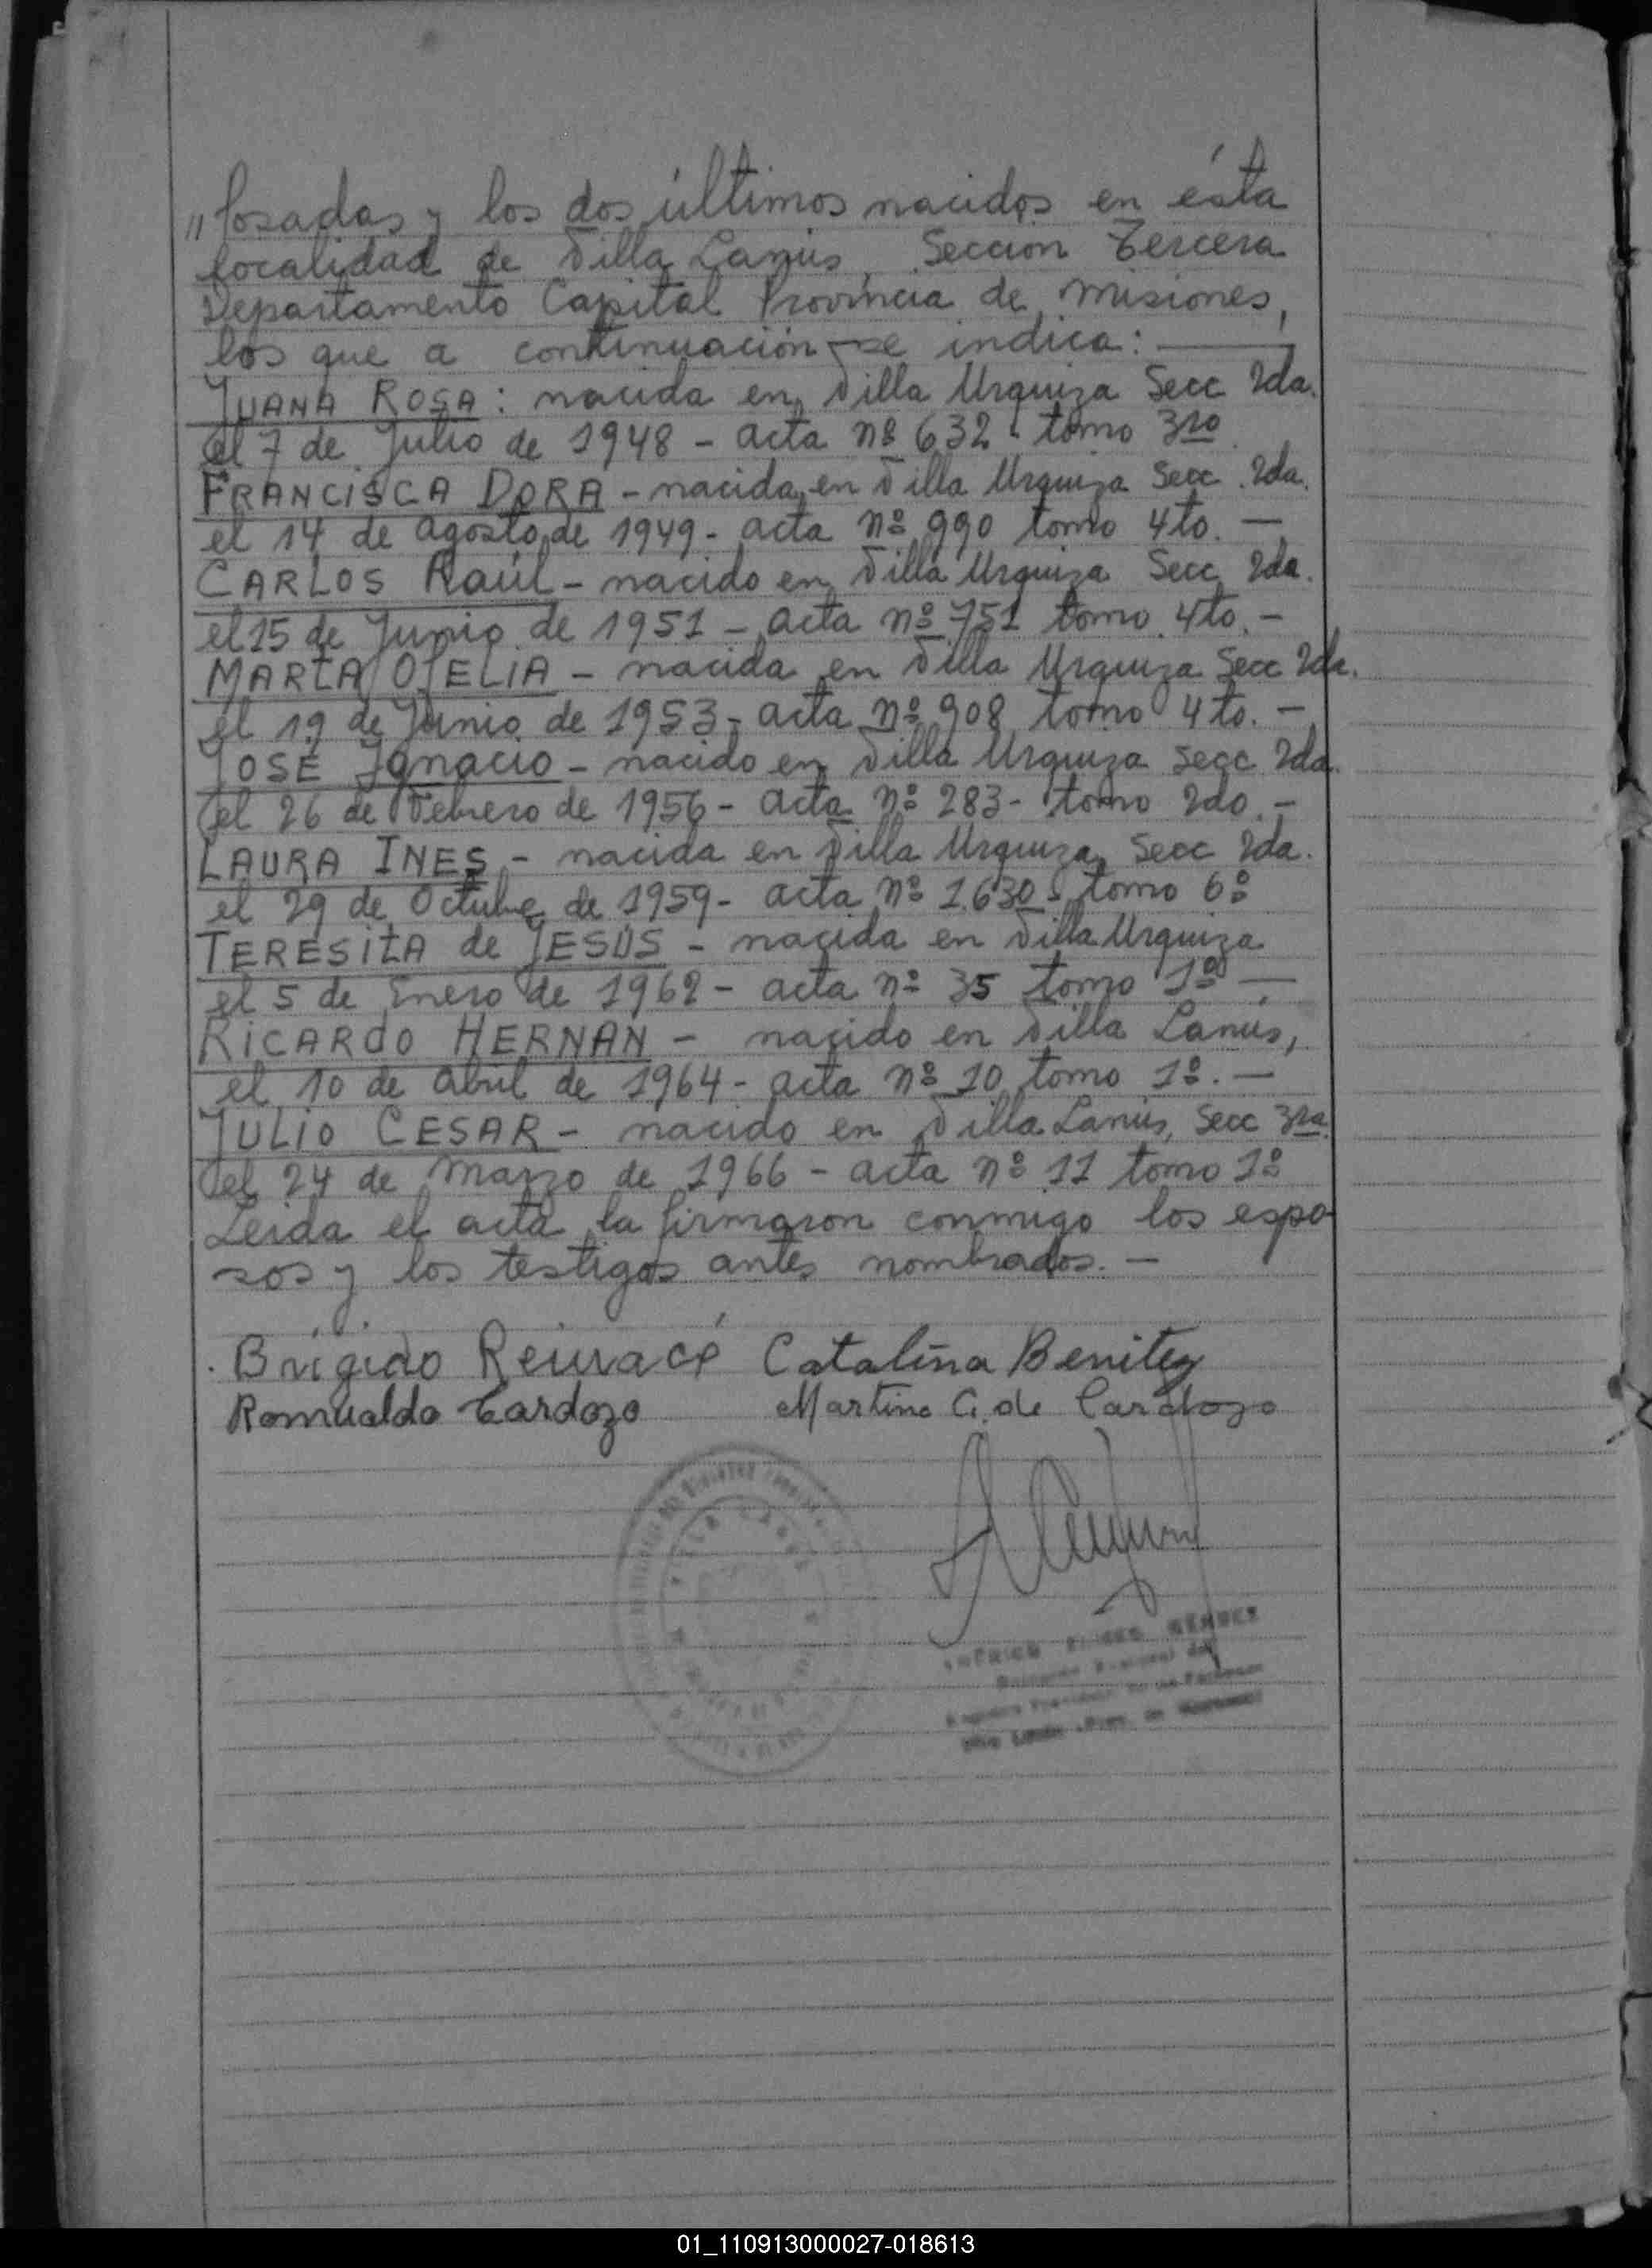 " Posadas y los dos últimos nacidos en ésta
localidad de Villa Lanús, Sección Tercera
Departamento Capital Provincia de Misiones,
los que a continuación se indica: —
JUANA ROSA: nacida en Villa Urquiza Secc 2da.
el 7 de Julio de 1948 - acta nº 632 - tomo 3ro
FRANCISCA DORA - nacida en Villa Urquiza Secc. 2da.
el 14 de agosto de 1949 - acta nº 990 tomo 4to. —
CARLOS Raúl - nacido en Villa Urquiza Secc 2da.
el 15 de Junio de 1951 - acta nº 751 tomo 4to. -
MARTA OFELIA - nacida en Villa Urquiza Secc 2da.
el 19 de Junio de 1953 - acta nº 908 tomo 4to. -
JOSÉ Ignacio - nacido en Villa Urquiza Secc 2da.
el 26 de Febrero de 1956 - acta nº 283 - tomo 2do. -
LAURA INES - nacida en Villa Urquiza, Secc 2da.
el 29 de Octubre de 1959 - acta nº 1.630 - tomo 6º
TERESITA de JESÚS - nacida en Villa Urquiza
el 5 de Enero de 1962 - acta nº 35 tomo 1º —
RICARDO HERNAN - nacido en Villa Lanús,
el 10 de abril de 1964 - acta nº 10 tomo 1º. —
JULIO CESAR - nacido en Villa Lanús, Secc 3ra.
el 24 de Marzo de 1966 - acta nº 11 tomo 1º
Leida el acta la firmaron conmigo los espo-
sos y los testigos antes nombrados. —
Brígido Catalina Benitez
Romualdo Cardozo Martina G. de Cardozo